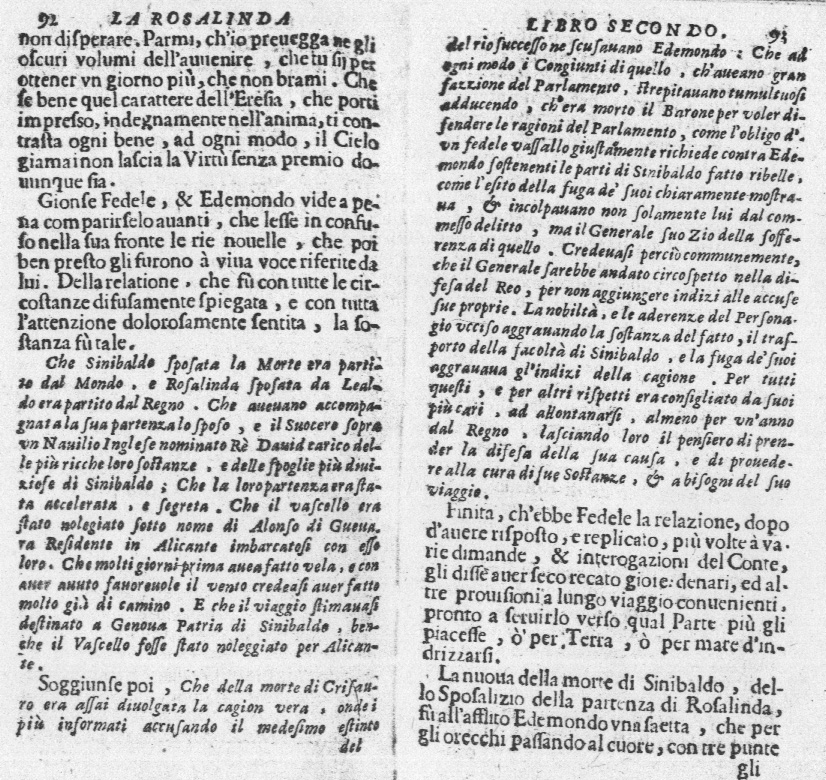 92 LA ROSALINDA
non disperare. Parmi, ch'io preuegga ne gli
oscuri volumi dell'auuenire, che tu sij per
ottener vn giorno più, che non brami. Che
se bene quel carattere dell'Eresia, che porti
impresso, indegnamente nell'anima, ti con-
trasta ogni bene, ad ogni modo, il Cielo
giamai non lascia la Virtù senza premio do-
uunque sia.
Gionse Fedele, & Edemondo vide a pe-
na comparirselo auanti, che lesse in confu-
so nella sua fronte le rie nouelle, che poi
ben presto gli furono à viua voce riferite da
lui. Della relatione, che fù con tutte le cir-
costanze difusamente spiegata, e con tutta
l'attenzione dolorosamente sentita, la so-
stanza fù tale.
Che Sinibaldo sposata la Morte era parti-
to dal Mondo, e Rosalinda sposata da Leal-
do era partito dal Regno. Che aueuano accompa-
gnata la sua partenza lo sposo, e il Suocero sopra
vn Nauilio Inglese nominato Rè Dauid carico del-
le più ricche loro sostanze, e delle spoglie più diui-
ziose di Sinibaldo; Che la loro partenza era sta-
ta accelerata, e segreta. Che il vascello era
stato nolegiato sotto nome di Alonso di Gueua-
ra Residente in Alicante imbarcatosi con esso
loro. Che molti giorni prima auea fatto vela, e con
auer auuto fauoreuole il vento credeasi auer fatto
molto già di camino. E che il viaggio stimauasi
destinato a Genoua Patria di Sinibaldo, ben-
che il Vascello fosse stato noleggiato per Alican-
te.
Soggiunse poi, Che della morte di Crisau-
ro era assai diuolgata la cagion vera, onde i
più informati accusando il medesimo estinto
del
LIBRO SECONDO. 93
del rio successo ne scusauano Edemondo: Che ad
ogni modo i Congiunti di quello, ch'aueano gran
fazzione del Parlamento, strepitauano tumultuosi
adducendo, ch'era morto il Barone per voler di-
fendere le ragioni del Parlamento, come l'obligo d'
vn fedele vassallo giustamente richiede contra Ede-
mondo sostenenti le parti di Sinibaldo fatto ribelle,
come l'esito della fuga de' suoi chiaramente mostra-
ua, & incolpauano non solamente lui dal com-
messo delitto, ma il Generale suo Zio della soffe-
renza di quello. Credeuasi perciò communemente,
che il Generale sarebbe andato circospetto nella di-
fesa del Reo, per non aggiungere indizi alle accuse
sue proprie. La nobiltà, e le aderenze del Persona-
gio vcciso aggrauando la sostanza del fatto, il tras-
porto della facoltà di Sinibaldo, e la fuga de' suoi
aggrauaua gl'indizi della cagione. Per tutti
questi, e per altri rispetti era consigliato da suoi
più cari, ad allontanarsi, almeno per vn'anno
dal Regno, lasciando loro il pensiero di pren-
der la difesa della sua causa, e di prouede-
re alla cura di sue Sostanze, & a bisogni del suo
viaggio.
Finita, ch'ebbe Fedele la relazione, dopo
d'auere risposto, e replicato, più volte à va-
rie dimande, & interogazioni del Conte,
gli disse auer seco recato gioie: denari, ed al-
tre prouisioni a lungo viaggio conuenienti,
pronto a seruirlo verso qual Parte più gli
piacesse, ò per Terra, ò per mare d'in-
drizzarsi.
La nuoua della morte di Sinibaldo, del-
lo Sposalizio della partenza di Rosalinda,
fù all'afflito Edemondo vna saetta, che per
gli orecchi passando al cuore, con tre punte
gli